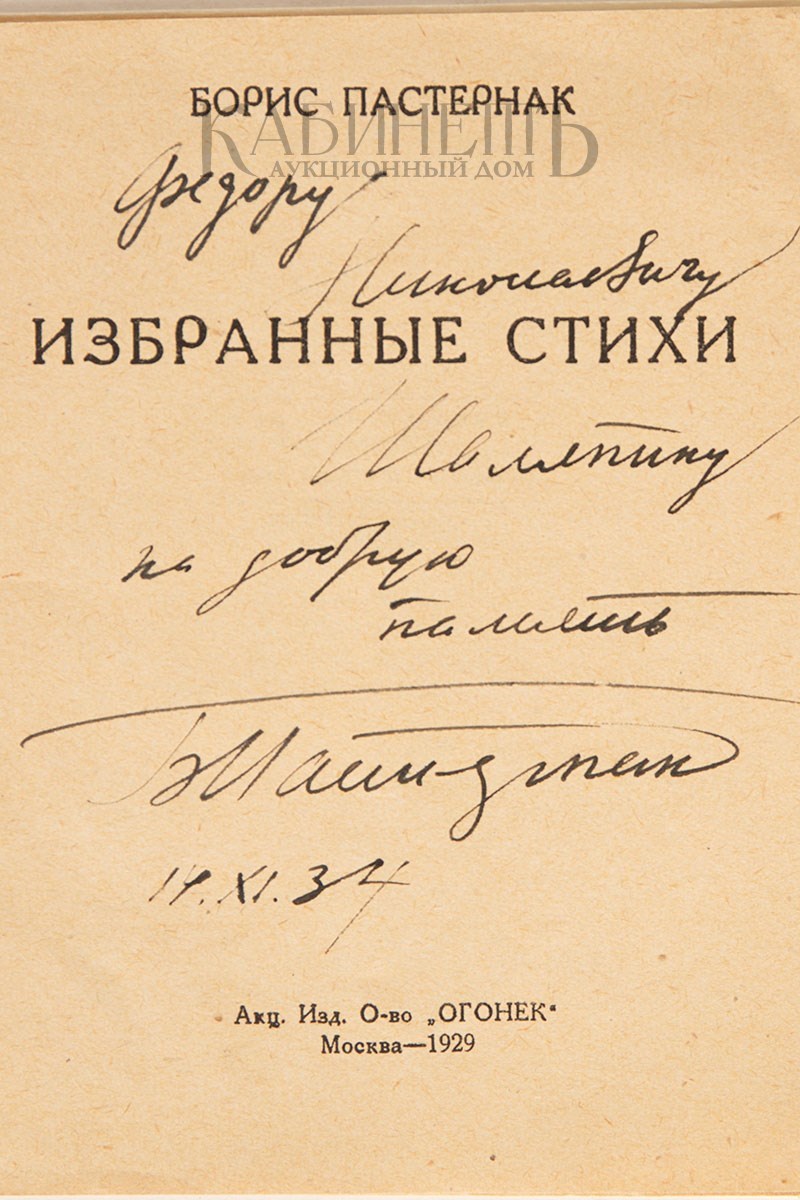 БОРИС ПАСТЕРНАК
КАБИНЕТЪ
АУКЦИОННЫЙ ДОМ
Федору
Николаевичу
ИЗБРАННЫЕ СТИХИ
Шаляпину
на добрую
память
БПастернак
14.XI.34
Акц. Изд. О-во „ОГОНЕК“
Москва—1929